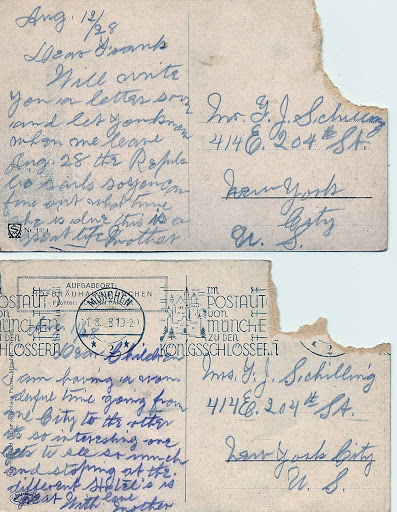 Aug. 12/28
Dear Frank
Will write
You a letter soon
and let you know
when we leave
Aug. 28 the Repub
lic sails so you can
fine out what time
she is due this is a
great life Mother
Mr. F. J. Schilling
414 E. 204th St.
New York
City
U. S.
AUFGABEORT:
BRÄUHAUS MÜNCHEN
Pächter:
MÜNCHEN
IM
POSTAUT
von
MÜNCHE
ZU DEN
KÖNIGSSCHLÖSSERN
Dear Children
am having a won
derful time going from
one City to the other
its so interesting one
gets to see so much
and stoping at the
different Hotel's is
great
With love Mother
Mrs. F. J. Schilling
414 E. 204th St.
New York City
U. S.